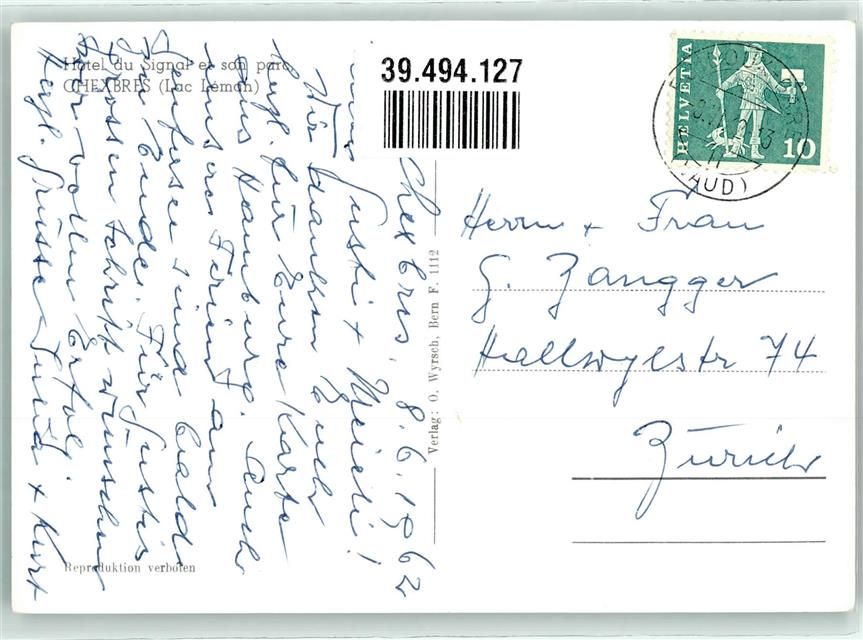 Hotel du Signal et son parc
CHEXBRES (Lac Léman)
39.494.127
HELVETIA
10
(VAUD)
Chexbres, 8.6.1962
Gusti + Meieli!
Wir danken Euch
herzl. für Eure Karte
aus Hamburg. Auch
unsere Ferien
sind bald
zu Ende. Für Gustis
grossen Schritt wünschen
wir vollen Erfolg.
Herzl. Grüsse + Kurt
Verlag: O. Wyrsch, Bern F. 1112
Herrn + Frau
G. Zangger
Hallwylstr 74
Zürich
Reproduktion verboten